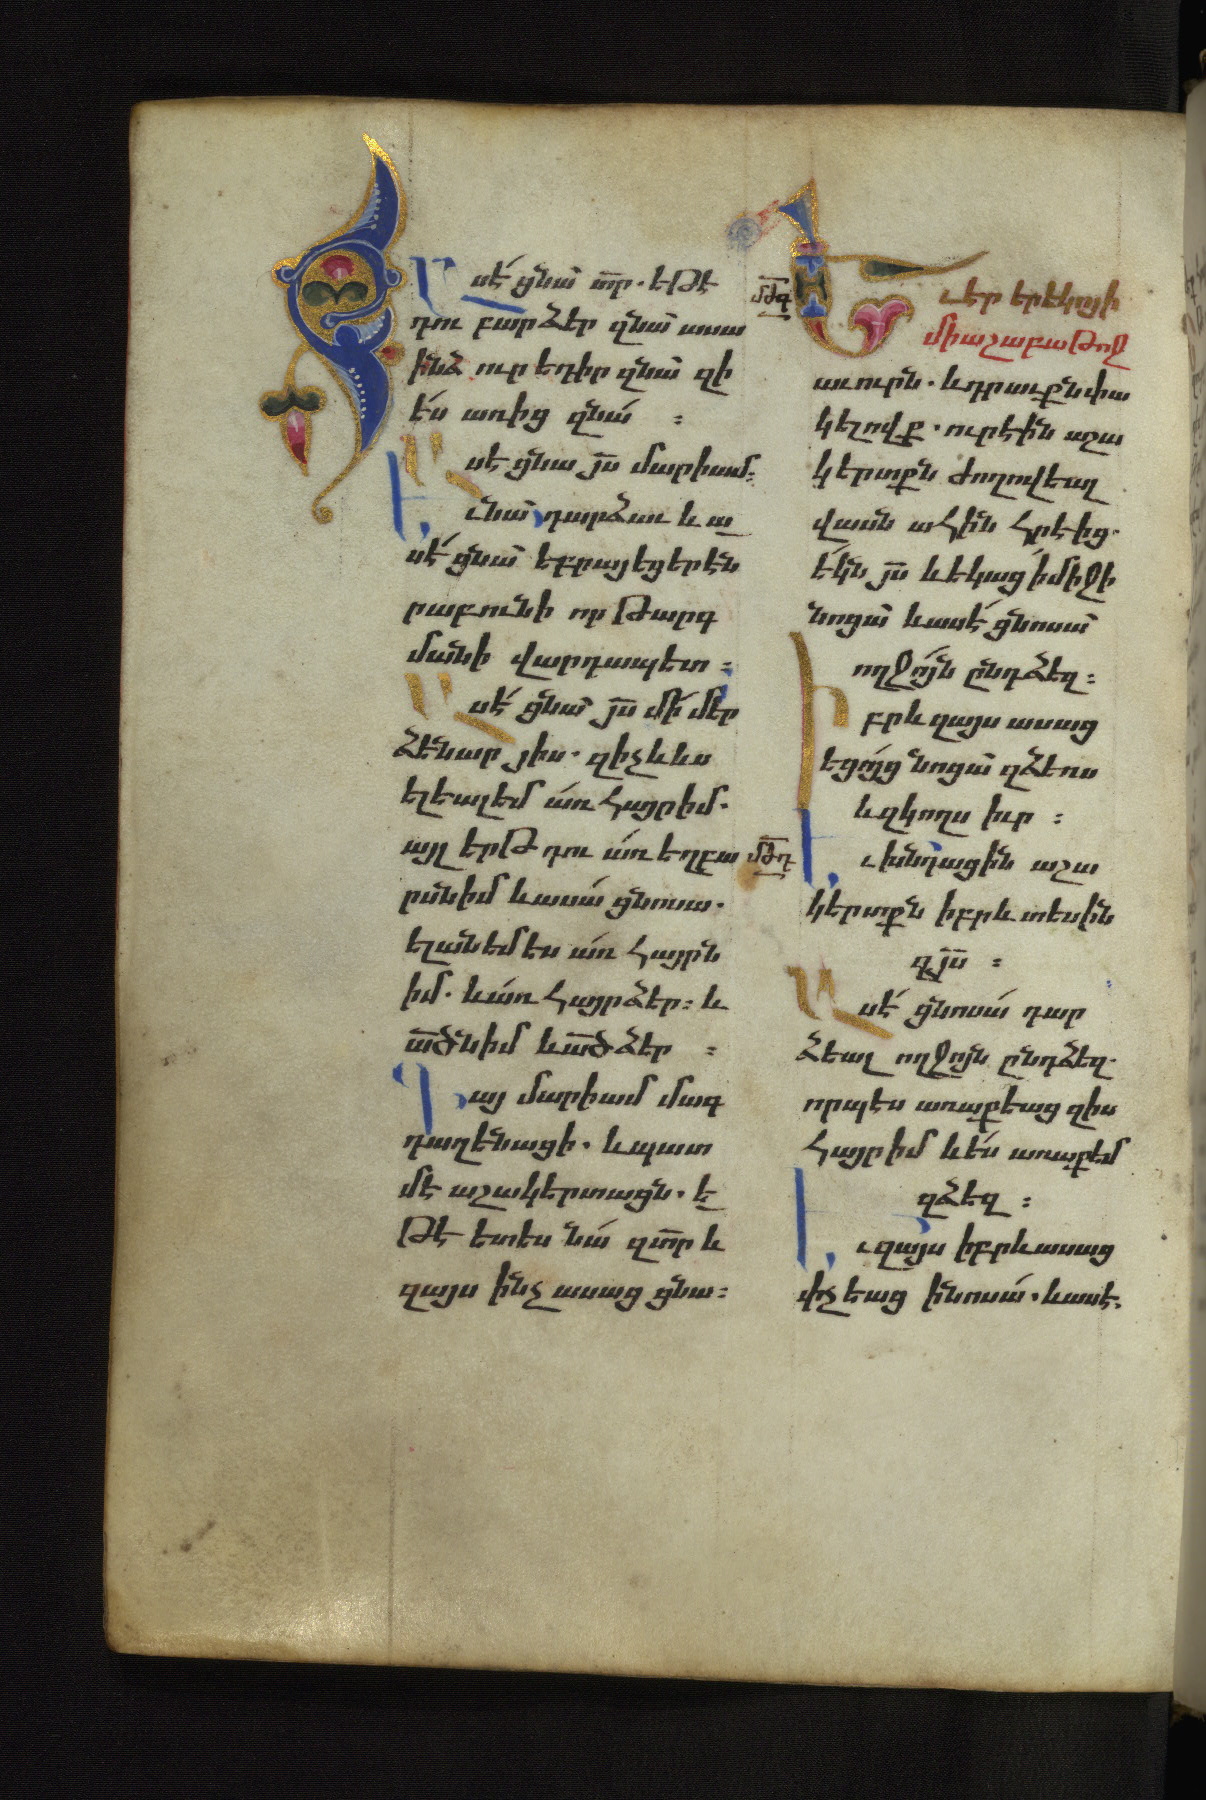 Ասէ ցնա տր. եթէ
դու բարձեր զնա ասա
ինձ ուր եդիր զնա զի
ես առից զնա :
Ասէ ցնա յս մարիամ:
Եւ նա դարձաւ և ա
սէ ցնա եբրայեցերէն
րաբունի որ թարգ
մանի վարդապետ :
Ասէ ցնա յս մի մեր
ձենար յիս. զի չևևս
ելեալեմ առ հայրիմ.
այլ երթ դու առ եղբա
րսնիմ և ասա ցնոսա.
ելանեմ ես առ հայրն
իմ. և առ հայր ձեր: և
ածնիմ և ած ձեր :
Գայ մարիամ մագ
դաղենացի. և պատ
մէ աշակերտացն. ե
թէ ետես նա զտր և
զայս ինչ ասաց ցնա:
մժգ
Եւ էր երեկոյ ի
միաշաբաթոջ
աւուրն. և դրաւքն փա
կելովք. ուր էին աշա
կերտքն ժողովեալ
վասն ահին հրէից.
եկն յս և եկաց ի միջի
նոցա և ասէ ցնոսա
ողջոյն ընդ ձեզ :
Իբրև զայս ասաց
եցոյց նոցա զձեռս
և զկողս իւր :
մժդ
Եւ խնդացին աշա
կերտքն իբրև տեսին
զյս :
Ասէ ցնոսա դար
ձեալ ողջոյն ընդ ձեզ.
որպես առաքեաց զիս
հայր իմ և ես առաքեմ
զձեզ :
Եւ զայս իբրև ասաց
փչեաց ի նոսա. և ասէ.